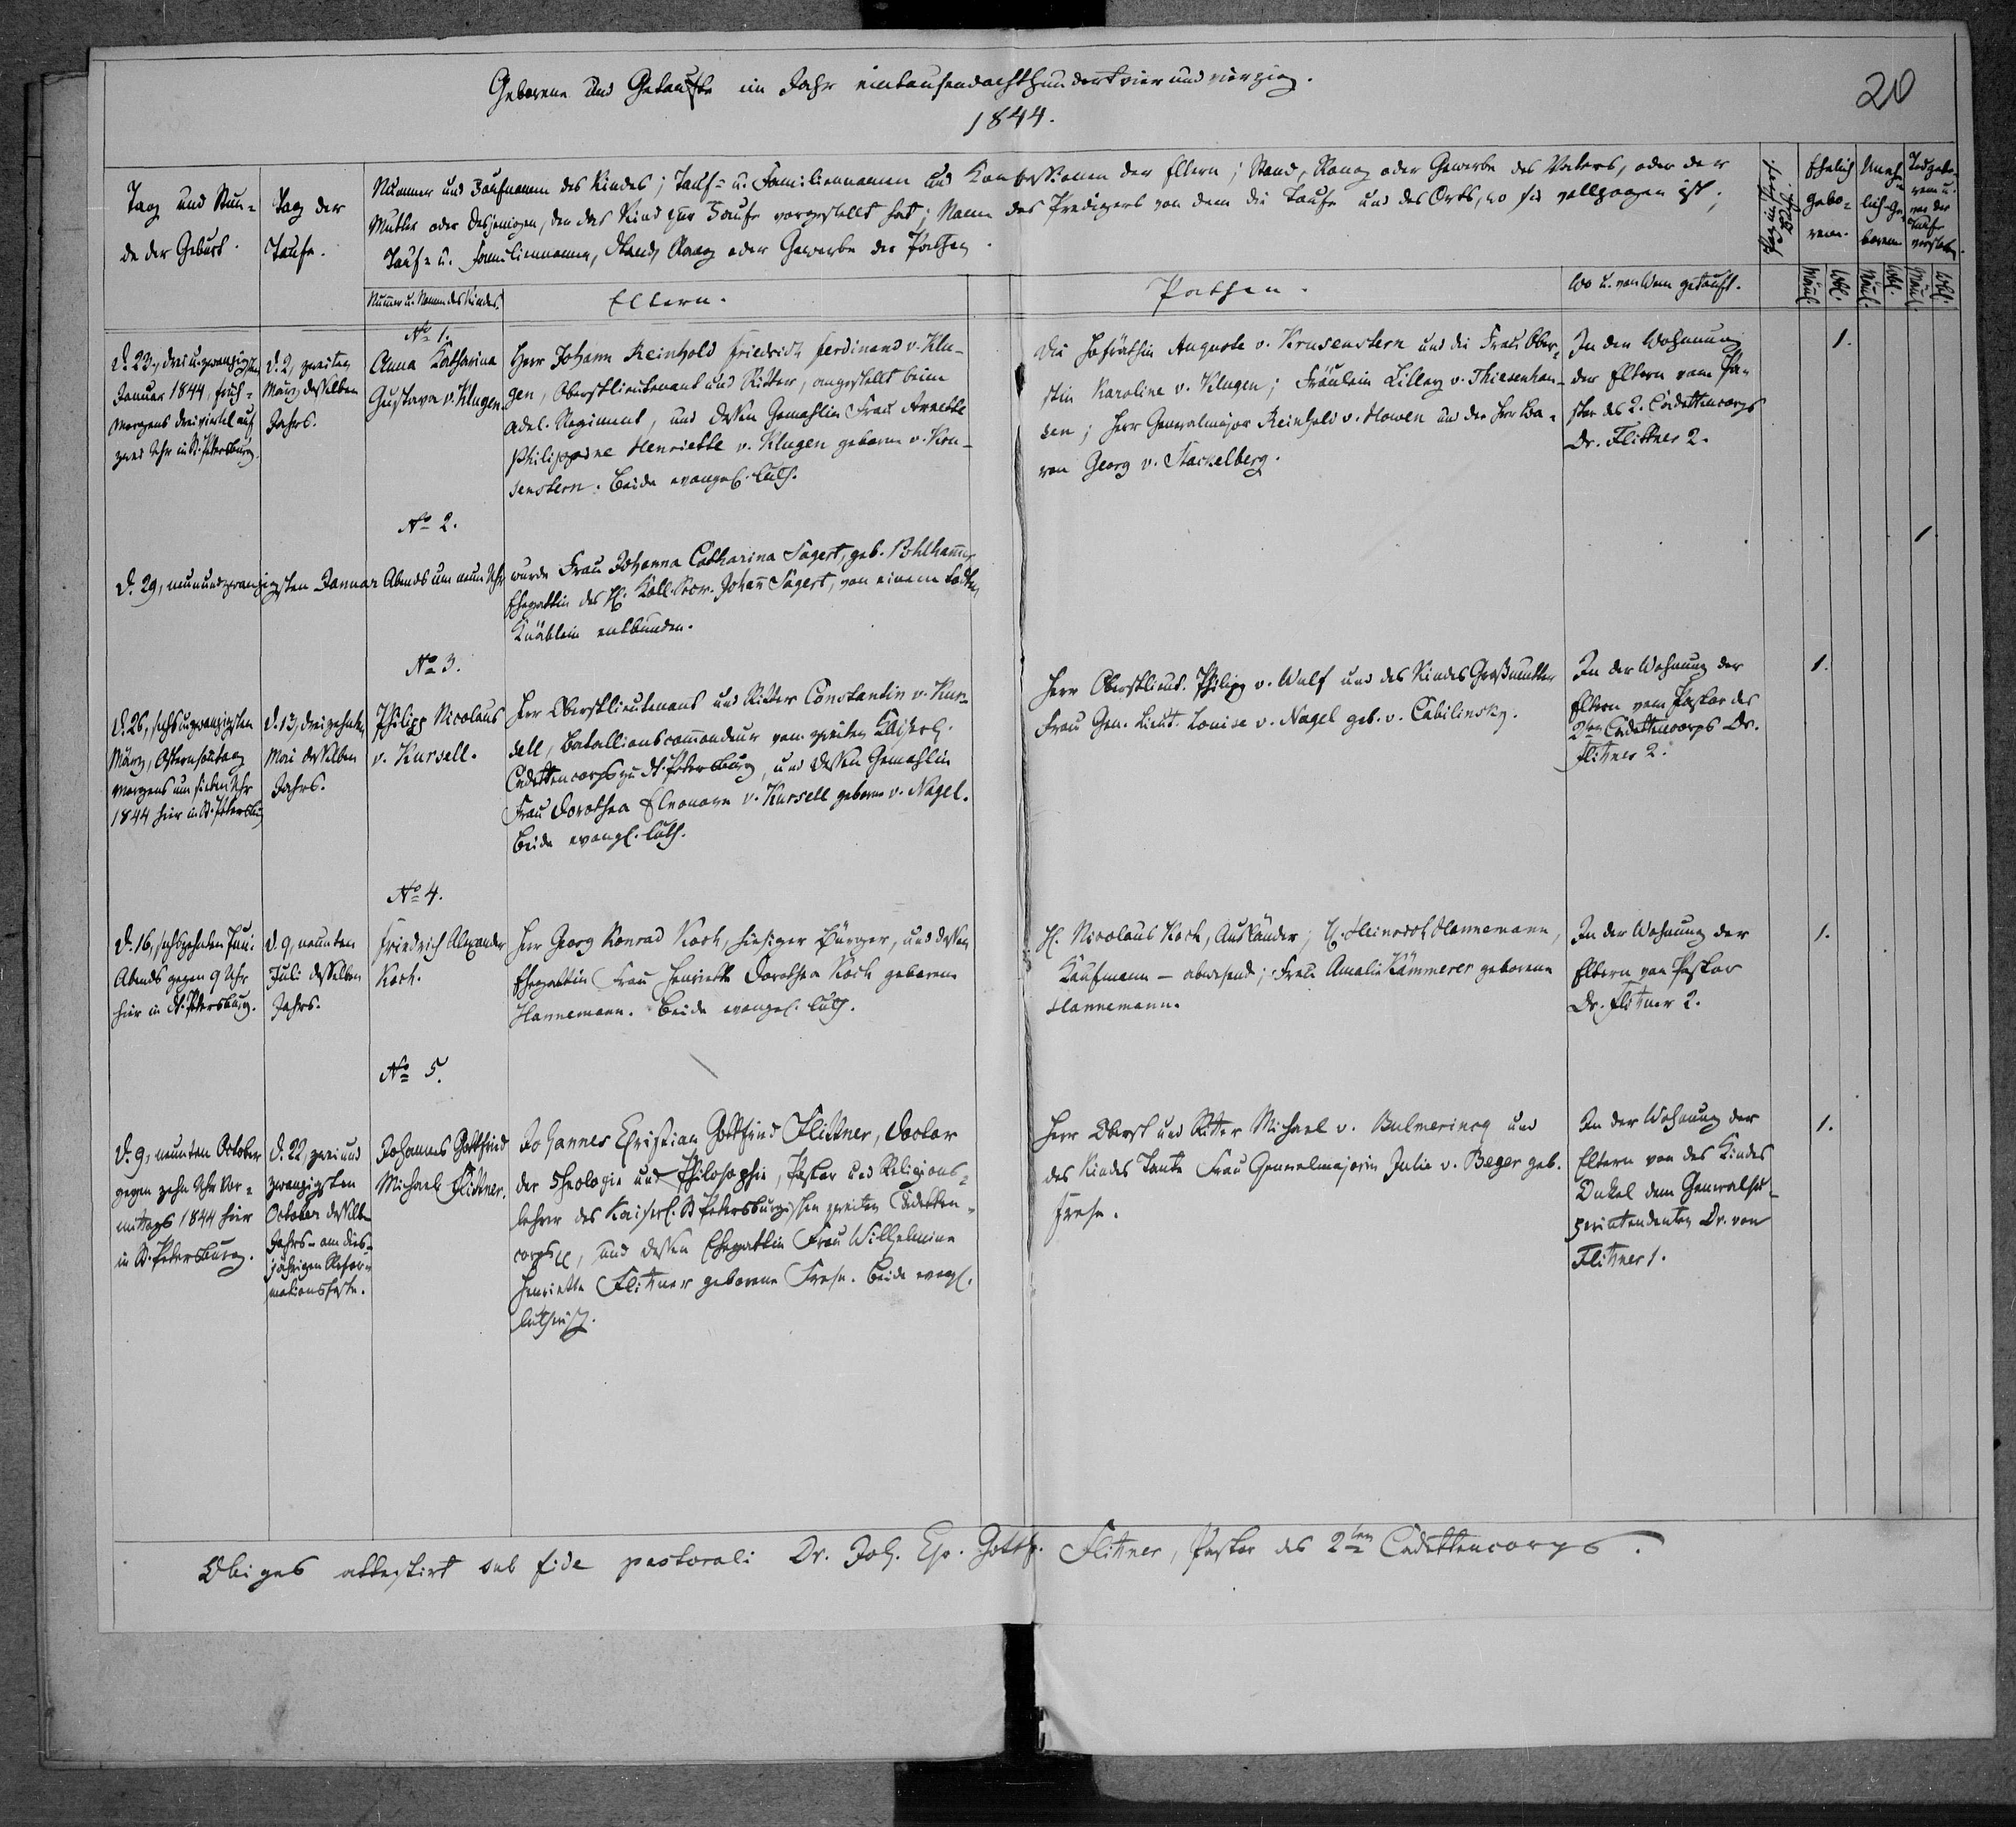 Geborene und Getaufte im Jahr eintausendachthundertvierundvierzig.
1844.
20
Tag und Stun-
de der Geburt.
Tag der
Taufe.
Nummer und Taufnamen des Kindes; Tauf- u. Familiennamen und Konfessionen der Eltern; Stand, Rang oder Gewerbe des Vaters, oder der
Mutter oder desjenigen, der das Kind zur Taufe vorgestellt hat; Name des Predigers von dem die Taufe und des Orts, wo sie vollzogen ist;
Tauf- u. Familiennamen, Stand, Rang oder Gewerbe der Pathen.
Ehelich
gebo-
rene.
Unehe-
lich Ge-
borene.
Todgebo-
rene u.
vor der
Taufe
verstorben.
Numer u. Namen des Kindes.
Eltern.
Pathen.
Wo u. von Wem getauft.
Mänl.
Wbl.
Mänl.
Wbl.
Mänl.
Wbl.
No 1.
D. 23, drei u. zwanzigsten
Januar 1844, früh-
morgens dreiviertel auf
zwei Uhr in St. Petersburg.
D. 2, zweiten
März desselben
Jahrs.
Anna Katharina
Gustava v. Klugen
Herr Johann Reinhold Friedrich Ferdinand v. Klu-
gen, Oberstlieutenant und Ritter, angestellt beim
Adel. Regiment, und dessen Gemahlin Frau Annette
Philippine Henriette v. Klugen geborne v. Kru-
senstern. Beide evangel. luth.
Die Hofräthin Auguste v. Krusenstern und die Frau Ober-
stin Karoline v. Klugen; Fräulein Lilley v. Thiesenhau-
sen; Herr Generalmajor Reinhold v. Howen und der Herr Ba-
ron Georg v. Stackelberg.
In der Wohnung
der Eltern vom Pa-
stor des 2. Cadettencorps
Dr. Flittner 2.
1.
No 2.
D. 29, neunundzwanzigsten Januar Abends um neun Uhr wurde Frau Johanna Catharina Sägert, geb. Pohlhamer
Ehegattin des H. Koll. Secr. Johann Sägert, von einem todten
Knäblein entbunden.
1
No 3.
D. 26, sechs u. zwanzigsten
März, Ostersontag
Morgens um sieben Uhr
1844 hier in St. Petersburg
D. 13, dreizehnten
Mai desselben
Jahrs.
Philipp Nicolaus
v. Kursell.
Herr Oberstlieutenant und Ritter Constantin v. Kur-
sell, Bataillonscomandeur vom zweiten Kaiserl.
Cadettencorps zu St. Petersburg, und dessen Gemahlin
Frau Dorothea Eleonore v. Kursell geborne v. Nagel.
Beide evangl. luth.
Herr Oberstlieut. Philipp v. Wulf und des Kindes Großmutter
Frau Gen. Lieut. Louise v. Nagel geb. v. Cabilinsky.
In der Wohnung der
Eltern vom Pastor des
2ten Cadettencorps Dr.
Flittner 2.
1.
No 4.
D. 16, sechszehnten Juni
Abends gegen 9 Uhr
hier in St. Petersburg.
D. 9, neunten
Juli desselben
Jahrs.
Friedrich Alexander
Koch.
Herr Georg Konrad Koch, hiesiger Bürger, und dessen
Ehegattin Frau Henriette Dorothea Koch geborene
Hannemann. Beide evangel. luth.
H. Nicolaus Koch, Ausländer; H. Heinrich Hannemann,
Kaufmann - abwesend; Frau Amalie Kämmerer geborene
Hannemann.
In der Wohnung der
Eltern von Pastor
Dr. Flittner 2.
1.
No 5.
D. 9, neunten October
gegen zehn Uhr Vor-
mittags 1844 hier
in St. Petersburg.
D. 22, zwei und
zwanzigsten
October desselben
Jahrs - am dies-
jährigen Refor-
mationsfeste.
Johannes Gottfried
Michael Flittner.
Johannes Christian Gottfried Flittner, Doctor
der Theologie und Philosophie, Pastor und Religions-
lehrer des Kaiserl. St. Petersburgischen zweiten Cadetten-
corps u, und dessen Ehegattin Frau Wilhelmine
Henriette Flittner geborene Frese. Beide evangl.
lutherisch.
Herr Oberst und Ritter Michael v. Bulmerincq und
des Kindes Tante Frau Generalmajorin Julie v. Beger geb.
Frese.
In der Wohnung der
Eltern von des Kindes
Onkel dem Generalsu-
perintendenten Dr. von
Flittner 1.
1.
Obiges attestirt sub fide pastorali Dr. Joh. Chr. Gottfr. Flittner, Pastor des 2ten Cadettencorps.